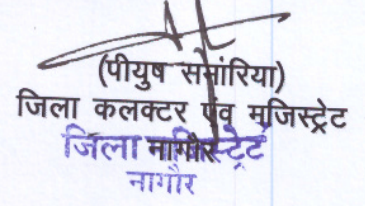 (पीयुष समांरिया)
जिला कलक्टर एंव मजिस्ट्रेट
नागौर
जिला मजिस्ट्रेट
नागौर